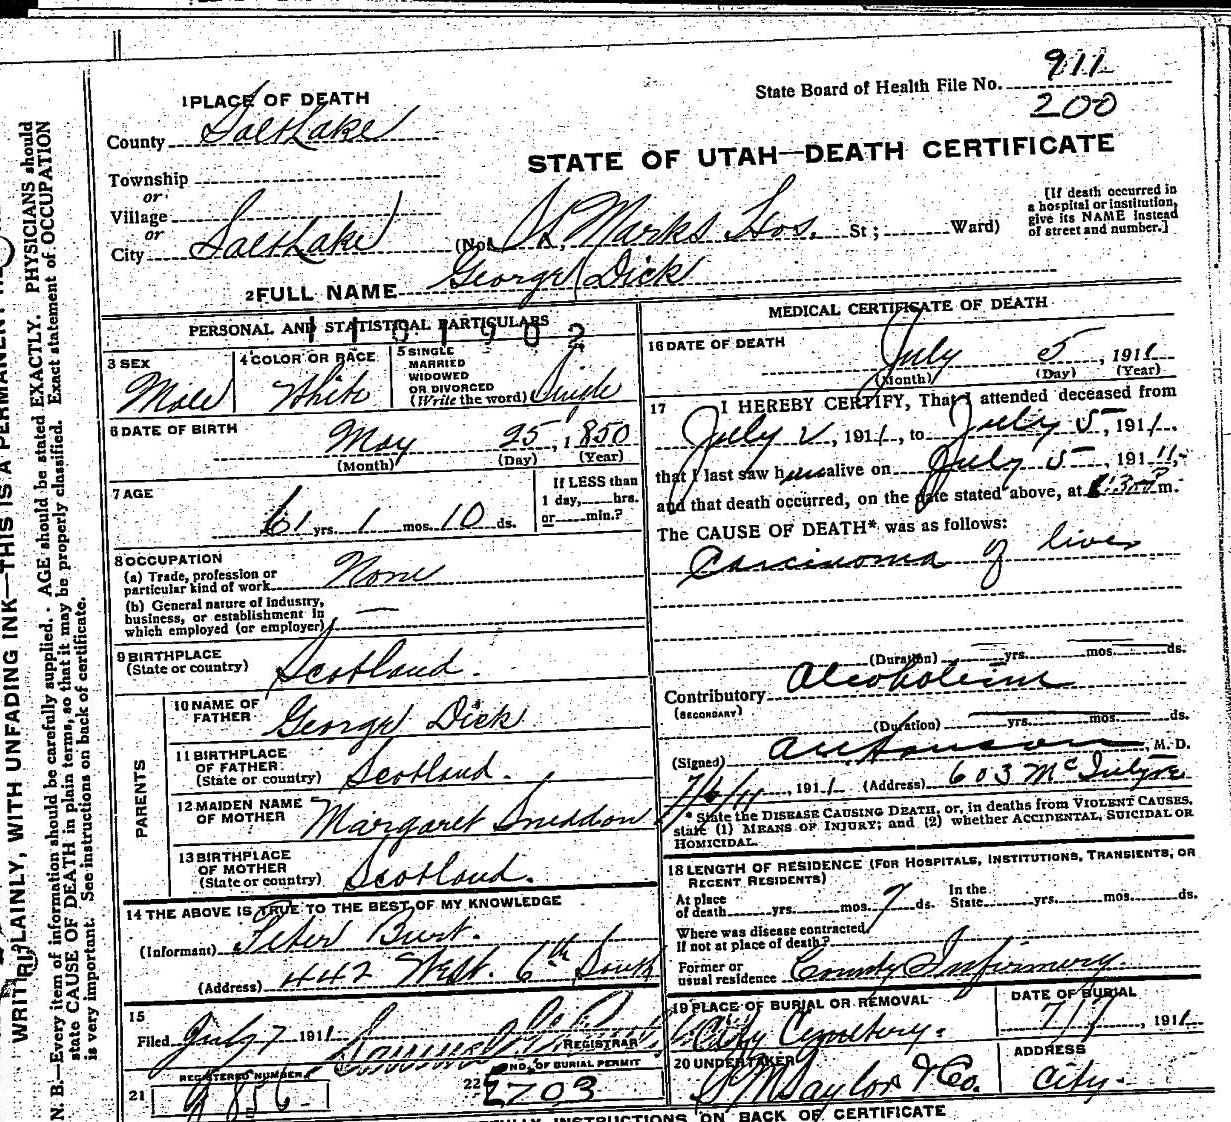 State Board of Health File No. 911
200
1 PLACE OF DEATH
County Salt Lake
STATE OF UTAH—DEATH CERTIFICATE
Township
or
Village
or
City Salt Lake (No. St. Marks Hos. St; Ward)
[If death occurred in
a hospital or institution,
give its NAME instead
of street and number.]
2 FULL NAME George Dick
PERSONAL AND STATISTICAL PARTICULARS
1101902
3 SEX
Male
4 COLOR OR RACE
White
5 SINGLE
MARRIED
WIDOWED
OR DIVORCED
(Write the word) Single
6 DATE OF BIRTH
May 25, 1850
(Month) (Day) (Year)
7 AGE
61 yrs. 1 mos. 10 ds.
If LESS than
1 day, hrs.
or min.?
8 OCCUPATION
(a) Trade, profession or
particular kind of work None
(b) General nature of industry,
business, or establishment in
which employed (or employer) —
9 BIRTHPLACE
(State or country) Scotland.
PARENTS
10 NAME OF
FATHER George Dick
11 BIRTHPLACE
OF FATHER
(State or country) Scotland.
12 MAIDEN NAME
OF MOTHER Margaret Sneddon
13 BIRTHPLACE
OF MOTHER
(State or country) Scotland.
14 THE ABOVE IS TRUE TO THE BEST OF MY KNOWLEDGE
(Informant) Peter Burt.
(Address) 442 West. 6th South
15
Filed July 7 1911
REGISTRAR
21 REGISTERED NUMBER
856
22 NO. OF BURIAL PERMIT
E703
MEDICAL CERTIFICATE OF DEATH
16 DATE OF DEATH
July 5, 1911
(Month) (Day) (Year)
17 I HEREBY CERTIFY, That I attended deceased from
July 2, 1911, to July 5, 1911.
that I last saw him alive on July 5, 191 11,
and that death occurred, on the date stated above, at :30 P m.
The CAUSE OF DEATH* was as follows:
Carcinoma of liver
(Duration) yrs. mos. ds.
Contributory Alcoholism
(SECONDARY)
(Duration) yrs. mos. ds.
(Signed) M. D.
7/6/11, 1911 (Address) 603 McIntyre
* State the DISEASE CAUSING DEATH, or, in deaths from VIOLENT CAUSES,
state (1) MEANS OF INJURY; and (2) whether ACCIDENTAL, SUICIDAL OR
HOMICIDAL.
18 LENGTH OF RESIDENCE (FOR HOSPITALS, INSTITUTIONS, TRANSIENTS, OR
RECENT RESIDENTS)
At place
of death yrs. mos. 7 ds.
In the
State yrs. mos. ds.
Where was disease contracted,
if not at place of death?
Former or
usual residence County Infirmary
19 PLACE OF BURIAL OR REMOVAL
City Cemetery.
DATE OF BURIAL
7/7, 1911
20 UNDERTAKER
S M Taylor & Co.
ADDRESS
City.
INSTRUCTIONS ON BACK OF CERTIFICATE
WRITE PLAINLY, WITH UNFADING INK—THIS IS A PERMANENT
N. B.—Every item of information should be carefully supplied. AGE should be stated EXACTLY. PHYSICIANS should
state CAUSE OF DEATH in plain terms, so that it may be properly classified. Exact statement of OCCUPATION
is very important. See instructions on back of certificate.